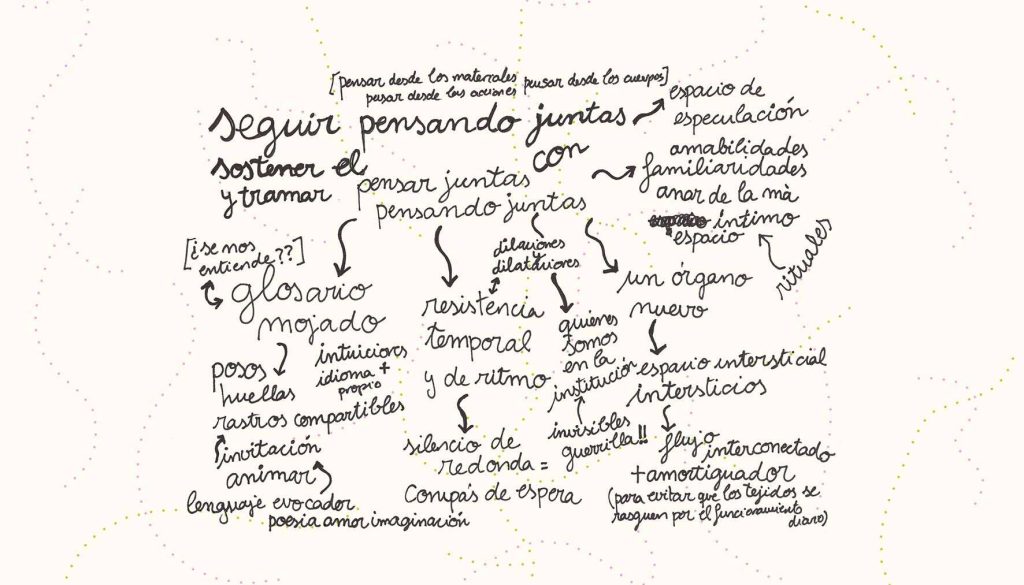 [pensar desde los materiales pensar desde los cuerpos]
pensar desde las acciones
seguir pensando juntas
con
espacio de
especulación
sostener el
y tramar
pensar juntas
pensando juntas
amabilidades
familiaridades
amor de la mà
íntimo
espacio
rituales
[¿se nos
entiende??]
glosario
mojado
posos
huellas
rastros compartibles
intuiciones
idioma +
propio
invitación
animar
lenguaje evocador
poesia amor imaginación
dilaciones
y
dilataciones
resistencia
temporal
y de ritmo
silencio de
redonda =
Compás de espera
quiénes
somos
en la
institución
invisibles
guerrilla!!
un órgano
nuevo
espacio intersticial
intersticios
flujo
interconectado
+amortiguador
(para evitar que los tejidos se
rasguen por el funcionamiento
diario)